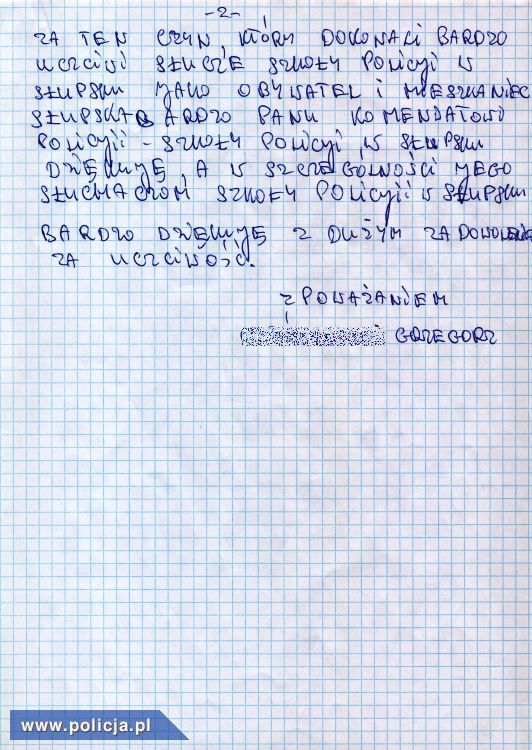 -2-
ZA TEN CZYN, KTÓRY DOKONALI BARDZO
UCZCIWI SŁUCHACZE SZKOŁY POLICYI W
SŁUPSKU JAKO OBYWATEL I MIESZKANIEC
SŁUPSKA BARDZO PANU KOMENDATOWI
POLICYII - SZKOŁY POLICYI, W SŁUPSKU
DZIĘKUJĘ, A W SZCZEGÓLNOŚCI JEGO
SŁUCHACZOM SZKOŁY POLICYII W SŁUPSKU
BARDZO DZIĘKUJĘ Z DUŻYM ZADOWOLENIE
ZA UCZCIWOŚĆ.
Z POWAŻANIEM
GRZEGORZ
www.policja.pl